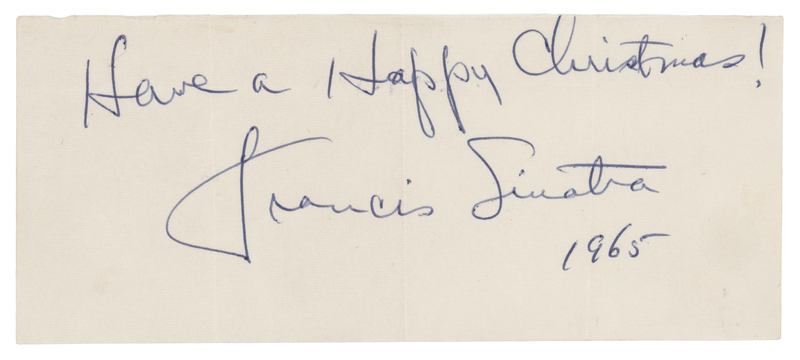 Have a Happy Christmas!
Francis Sinatra
1965